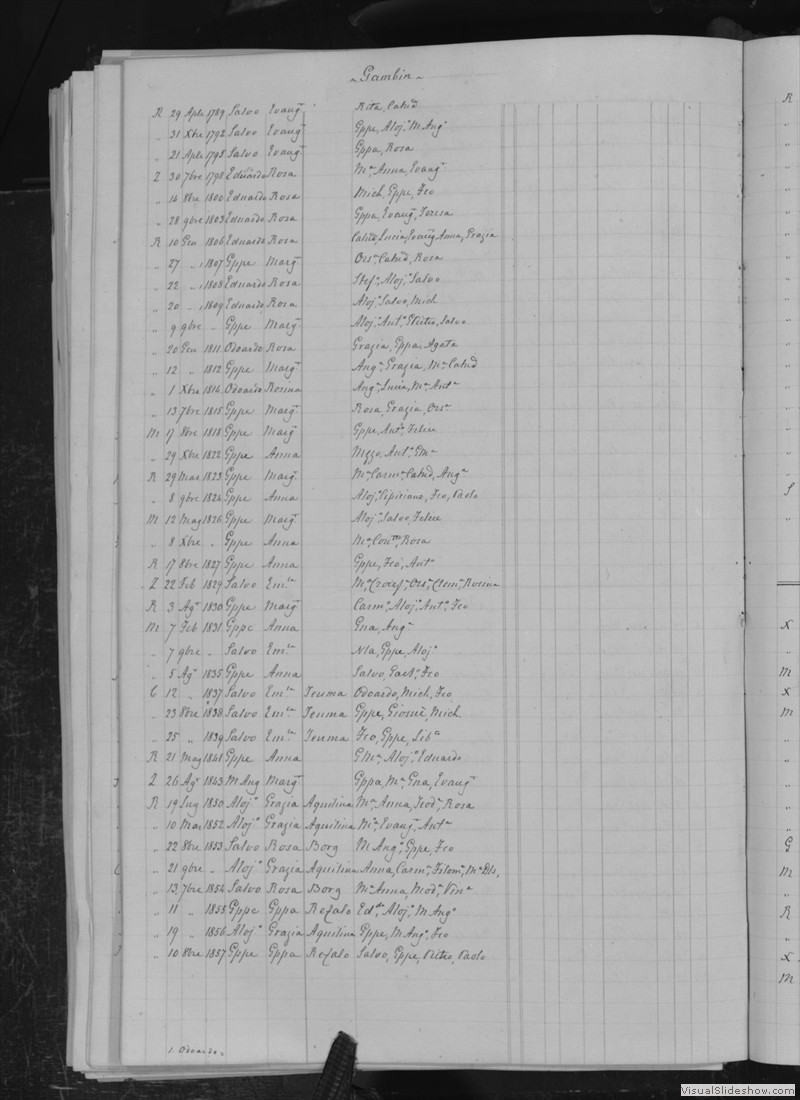 Gambin
R 29 Aple 1789 Salvo Evang.a Rita, Catnd
" 31 Xbre 1792 Salvo Evang.a Gppe, Aloj.o M Ang.o
" 21 Aple 1795 Salvo Evang.a Gppa, Rosa
Z 30 7bre 1798 Eduardo Rosa M.a Anna, Evang.a
" 14 8bre 1800 Eduardo Rosa Mich, Gppe, Fco
" 28 9bre 1803 Eduardo Rosa Gppa, Evang.a, Teresa
R 10 Gen 1806 Eduardo Rosa Catnd, Lucia, Evang.a Anna, Grazia
" 27 " 1807 Gppe Marg.a Ors.a Catnd, Rosa
" 22 " 1808 Eduardo Rosa Stef.o Aloj.o Salvo
" 20 " 1809 Eduardo Rosa Aloj.o Salvo, Mich
" 9 9bre " Gppe Marg.a Aloj.o Ant.o Salvo
" 20 Gen 1811 Odoardo Rosa Grazia, Gppa, Agata
" 12 " 1812 Gppe Marg.a Ang.a Grazia, M.a Catnd
" 1 Xbre 1814 Odoardo Rosina Ang.a Lucia, M.a Ant.a
" 13 7bre 1815 Gppe Marg.a Rosa, Grazia, Ors.a
M 17 8bre 1818 Gppe Marg.a Gppe, Ant.o Felice
" 29 Xbre 1822 Gppe Anna Nzzo, Ant.o Em.o
R 29 Mar 1823 Gppe Marg.a M.a Carm.a Catnd, Ang.a
" 8 9bre 1824 Gppe Anna Aloj.o Cipriano, Fco, Paolo
M 12 Mag 1826 Gppe Marg.a Aloj.o Salvo, Felice
" 8 Xbre " Gppe Anna M.a Rosa
R 17 8bre 1827 Gppe Anna Gppe, Fco, Ant.o
Z 22 Feb 1829 Salvo Em.la M.a Crocef.a Ors.a Clem.a Rosina
R 3 Ag.o 1830 Gppe Marg.a Carm.o Aloj.o Ant.o Fco
M 7 Feb 1831 Gppe Anna Gna, Ang.a
" 7 9bre " Salvo Em.la Nla, Gppe, Aloj.o
" 5 Ag.o 1835 Gppe Anna Salvo, Gaet.o Fco
C 12 " 1837 Salvo Em.la Teuma Odoardo, Mich, Fco
" 23 8bre 1838 Salvo Em.la Teuma Gppe, Giosuè, Mich
" 25 " 1839 Salvo Em.la Teuma Fco, Gppe, Lib.o
R 21 Mag 1841 Gppe Anna GM.a Aloj.o Eduardo
Z 26 Ag.o 1843 M Ang Marg.a Gppa, M.a Gna, Evang.a
R 19 Lug 1850 Aloj.o Grazia Aquilina M.a Anna, Teod.a Rosa
" 10 Mar 1852 Aloj.o Grazia Aquilina M.a Evang.a Ant.a
" 22 8bre 1853 Salvo Rosa Borg M Ang.o Gppe, Fco
" 21 9bre " Aloj.o Grazia Aquilina Anna, Carm.a Filom.a M.a
" 13 7bre 1854 Salvo Rosa Borg M.a Anna, Mod.a Vin.a
" 11 " 1855 Gppe Gppa Refalo Ed.do Aloj.o M Ang.o
" 19 " 1856 Aloj.o Grazia Aquilina Gppe, M Ang.o Fco
" 10 8bre 1857 Gppe Gppa Refalo Salvo, Gppe, Pietro, Paolo
1. Odoardo
R
S
X
M
X
M
G
M
R
X
M
VisualSlideshow.com